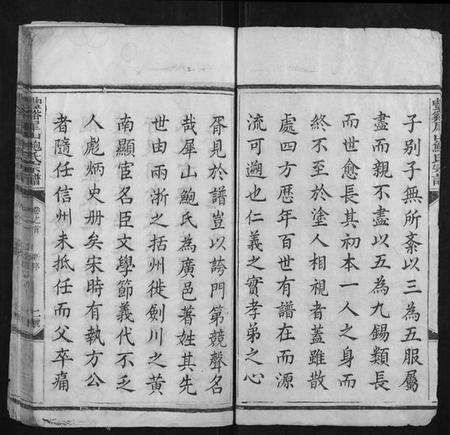 子別子無所紊以三為五服屬
盡而親不盡以五為九錫類長
而世愈長其初本一人之身而
終不至於塗人相視者蓋雖散
處四方歷年百世有譜在而源
流可遡也仁義之實孝弟之心
胥見於譜豈以誇門第競聲名
哉犀山鮑氏為廣邑著姓其先
世由雨浙之括州徙劍川之黄
南顯宦名臣文學節義代不乏
人彪炳史册矣宋時有執方公
者隨任信州未抵任而父卒痛